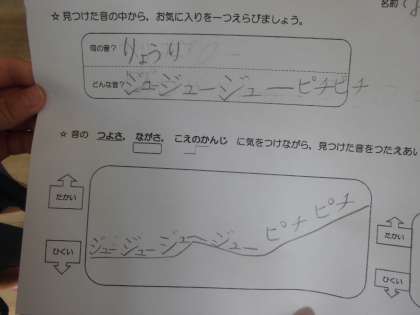 名前(
☆ 見つけた音の中から、お気に入りを一つえらびましょう。
何の音? りょうり
どんな音? ジュージュージュー―ピチピチ
☆ 音の つよさ、ながさ、こえのかんじ に気をつけながら、見つけた音をつたえあい
たかい
ピチ ピチ
たかい
ジュー ジュー ジュー ジュー
ひくい
ひくい